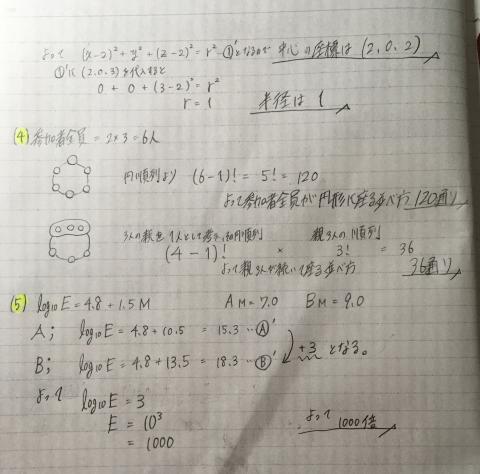 よって (x-2)²+y²+(z-2)²=r² …①'となるので 中心の座標は(2,0,2)
①'に(2,0,3)を代入すると
0 + 0 + (3-2)² = r²
r = 1 半径は1
(4) 参加者全員 = 2×3 = 6人
円順列より (6-1)! = 5! = 120
よって参加者全員が円形に座る並べ方 120通り
3人の親を1人として考える円順列 親3人の順列
(4-1)! × 3! = 36
よって親3人が続いて座る並べ方 36通り
(5) log₁₀E = 4.8 + 1.5M A M=7.0 B M=9.0
A; log₁₀E = 4.8 + 10.5 = 15.3 …Ⓐ'
B; log₁₀E = 4.8 + 13.5 = 18.3 …Ⓑ' +3 となる。
よって log₁₀E = 3
E = 10³
= 1000 よって 1000倍